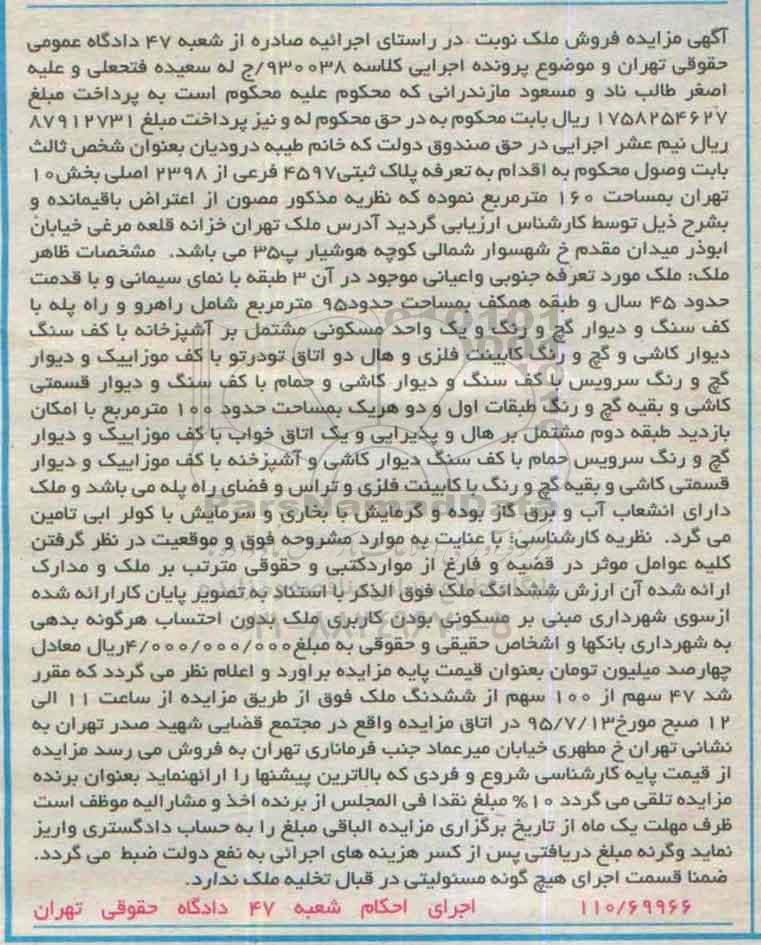 آگهی مزایده فروش ملک نوبت در راستای اجرائیه صادره از شعبه ۴۷ دادگاه عمومی
حقوقی تهران و موضوع پرونده اجرایی کلاسه ۹۳۰۰۳۸/ج له سعیده فتحعلی و علیه
اصغر طالب ناد و مسعود مازندرانی که محکوم علیه محکوم است به پرداخت مبلغ
۱۷۵۸۲۵۴۶۲۷ ریال بابت محکوم به در حق محکوم له و نیز پرداخت مبلغ ۸۷۹۱۲۷۳۱
ریال نیم عشر اجرایی در حق صندوق دولت که خانم طیبه درودیان بعنوان شخص ثالث
بابت وصول محکوم به اقدام به تعرفه پلاک ثبتی۴۵۹۷ فرعی از ۲۳۹۸ اصلی بخش۱۰
تهران بمساحت ۱۶۰ مترمربع نموده که نظریه مذکور مصون از اعتراض باقیمانده و
بشرح ذیل توسط کارشناس ارزیابی گردید آدرس ملک تهران خزانه قلعه مرغی خیابان
ابوذر میدان مقدم خ شهسوار شمالی کوچه هوشیار پ۳۵ می باشد. مشخصات ظاهر
ملک: ملک مورد تعرفه جنوبی واعیانی موجود در آن ۳ طبقه با نمای سیمانی و با قدمت
حدود ۴۵ سال و طبقه همکف بمساحت حدود۹۵ مترمربع شامل راهرو و راه پله با
کف سنگ و دیوار گچ و رنگ و یک واحد مسکونی مشتمل بر آشپزخانه با کف سنگ
دیوار کاشی و گچ و رنگ کابینت فلزی و هال دو اتاق تودرتو با کف موزاییک و دیوار
گچ و رنگ سرویس با کف سنگ و دیوار کاشی و حمام با کف سنگ و دیوار قسمتی
کاشی و بقیه گچ و رنگ طبقات اول و دو هریک بمساحت حدود ۱۰۰ مترمربع با امکان
بازدید طبقه دوم مشتمل بر هال و پذیرایی و یک اتاق خواب با کف موزاییک و دیوار
گچ و رنگ سرویس حمام با کف سنگ دیوار کاشی و آشپزخنه با کف موزاییک و دیوار
قسمتی کاشی و بقیه گچ و رنگ با کابینت فلزی و تراس و فضای راه پله می باشد و ملک
دارای انشعاب آب و برق گاز بوده و گرمایش با بخاری و سرمایش با کولر ابی تامین
می گرد. نظریه کارشناسی: با عنایت به موارد مشروحه فوق و موقعیت در نظر گرفتن
کلیه عوامل موثر در قضیه و فارغ از مواردکتبی و حقوقی مترتب بر ملک و مدارک
ارائه شده آن ارزش ششدانگ ملک فوق الذکر با استناد به تصویر پایان کارارائه شده
ازسوی شهرداری مبنی بر مسکونی بودن کاربری ملک بدون احتساب هرگونه بدهی
به شهرداری بانکها و اشخاص حقیقی و حقوقی به مبلغ۴/۰۰۰/۰۰۰/۰۰۰ریال معادل
چهارصد میلیون تومان بعنوان قیمت پایه مزایده براورد و اعلام نظر می گردد که مقرر
شد ۴۷ سهم از ۱۰۰ سهم از ششدنگ ملک فوق از طریق مزایده از ساعت ۱۱ الی
۱۲ صبح مورخ۹۵/۷/۱۳ در اتاق مزایده واقع در مجتمع قضایی شهید صدر تهران به
نشانی تهران خ مطهری خیابان میرعماد جنب فرمانداری تهران به فروش می رسد مزایده
از قیمت پایه کارشناسی شروع و فردی که بالاترین پیشنها را ارائهنماید بعنوان برنده
مزایده تلقی می گردد ۱۰% مبلغ نقدا فی المجلس از برنده اخذ و مشارالیه موظف است
ظرف مهلت یک ماه از تاریخ برگزاری مزایده الباقی مبلغ را به حساب دادگستری واریز
نماید وگرنه مبلغ دریافتی پس از کسر هزینه های اجرائی به نفع دولت ضبط می گردد.
ضمنا قسمت اجرای هیچ گونه مسئولیتی در قبال تخلیه ملک ندارد.
۱۱۰/۶۹۹۶۶ اجرای احکام شعبه ۴۷ دادگاه حقوقی تهران